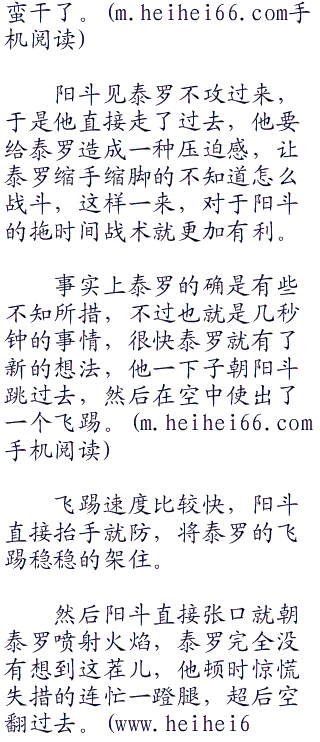 蛮干了。(m.heihei66.com手
机阅读)
阳斗见泰罗不攻过来，
于是他直接走了过去，他要
给泰罗造成一种压迫感，让
泰罗缩手缩脚的不知道怎么
战斗，这样一来，对于阳斗
的拖时间战术就更加有利。
事实上泰罗的确是有些
不知所措，不过也就是几秒
钟的事情，很快泰罗就有了
新的想法，他一下子朝阳斗
跳过去，然后在空中使出了
一个飞踢。(m.heihei66.com
手机阅读)
飞踢速度比较快，阳斗
直接抬手就防，将泰罗的飞
踢稳稳的架住。
然后阳斗直接张口就朝
泰罗喷射火焰，泰罗完全没
有想到这茬儿，他顿时惊慌
失措的连忙一蹬腿，超后空
翻过去。(www.heihei6